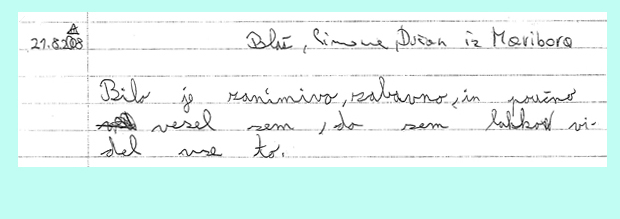 21.8.2008 Blaž, Simona, Dušan iz Maribora
Bilo je zanimivo, zabavno, in poučno
vesel sem, da sem lahko vi-
del vse to.